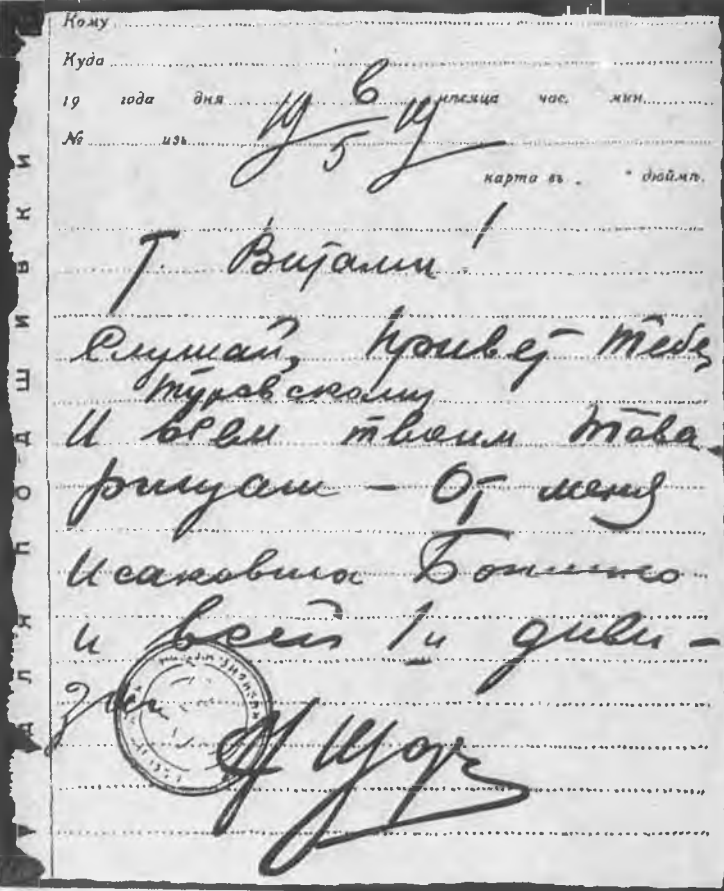 Кому
Куда
19 года дня мѣсяца час. мин.
№ изъ
5
карта въ „ “ дюймѣ.
Т. Виталий!
Слушай, привет тебе,
Туровскому
И всем твоим това-
рищам – От меня
Исаковича Боженко
и всей 1й диви-
зии
Н Щорс
ДЛЯ ПОДШИВКИ